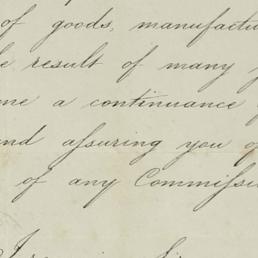 of goods, manufactu
result of many
me a continuance
and aſsuring you of
of any Commiſsi